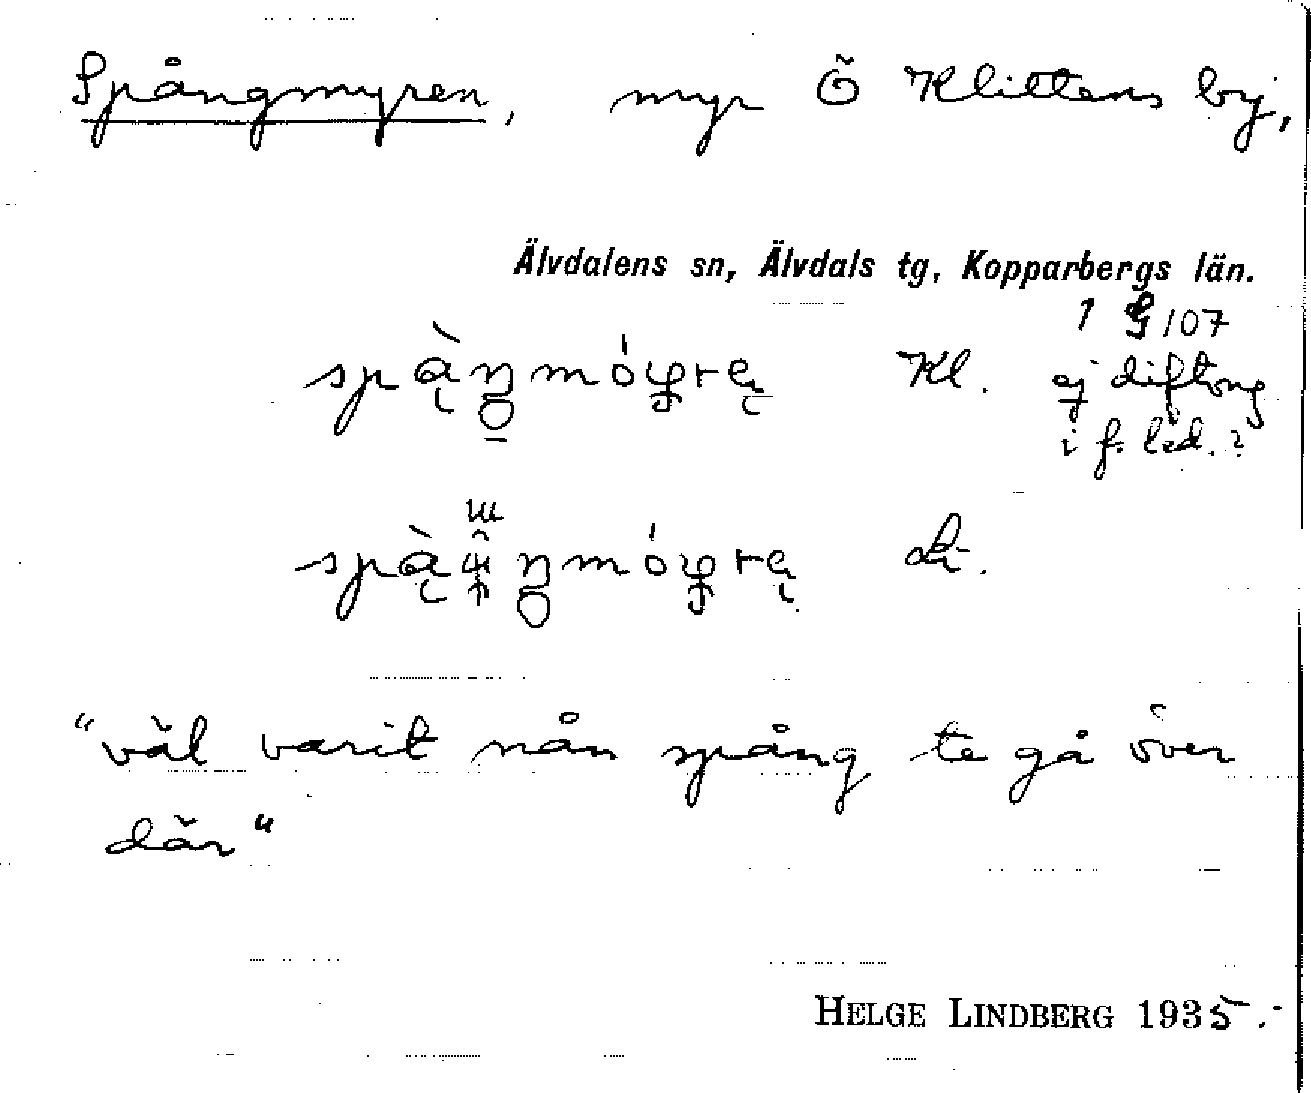 Spångmyren, myr Ö Klittens by,
Älvdalens sn, Älvdals tg, Kopparbergs län.
Kl. ej diftong
i f. led.?
Li.
"väl varit nån spång te gå över
där"
HELGE LINDBERG 1935.